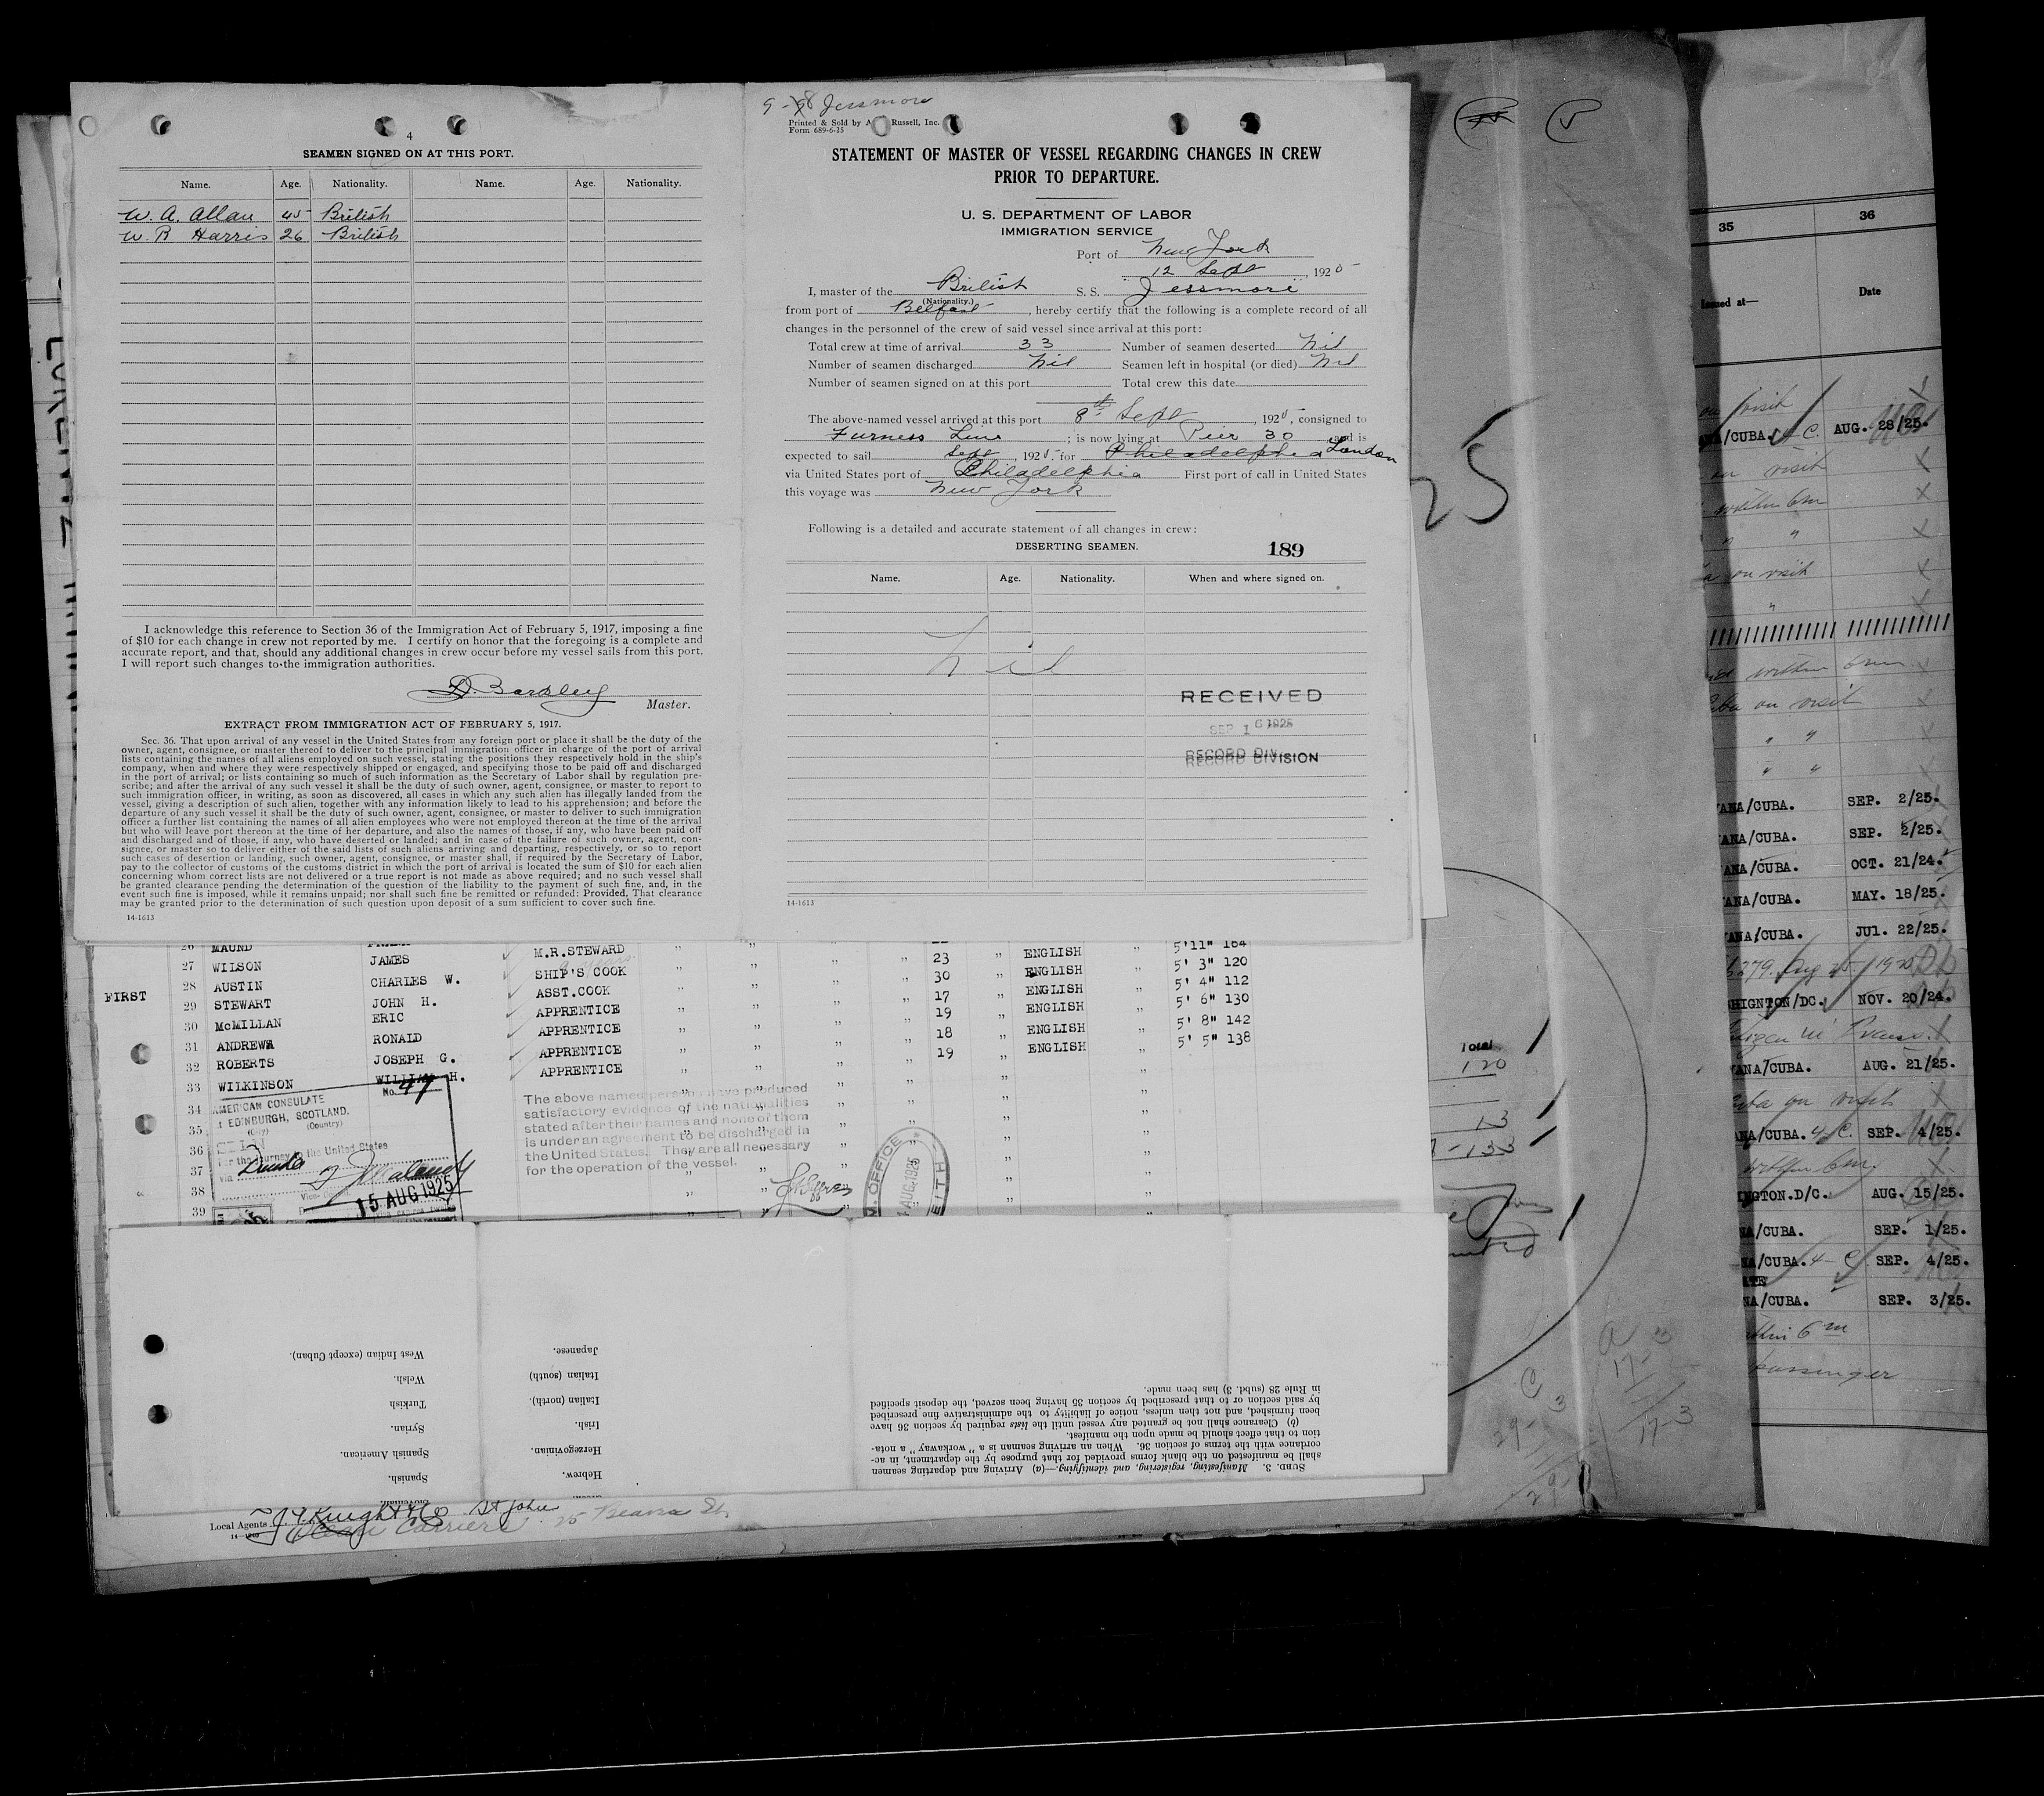 4
SEAMEN SIGNED ON AT THIS PORT.
Name. Age. Nationality. Name. Age. Nationality.
W. A. Allan 45 British
W. R Harris 26 British
I acknowledge this reference to Section 36 of the Immigration Act of February 5, 1917, imposing a fine
of $10 for each change in crew not reported by me. I certify on honor that the foregoing is a complete and
accurate report, and that, should any additional changes in crew occur before my vessel sails from this port,
I will report such changes to the immigration authorities.
Bardsley
Master.
EXTRACT FROM IMMIGRATION ACT OF FEBRUARY 5, 1917.
Sec. 36. That upon arrival of any vessel in the United States from any foreign port or place it shall be the duty of the
owner, agent, consignee, or master thereof to deliver to the principal immigration officer in charge of the port of arrival
lists containing the names of all aliens employed on such vessel, stating the positions they respectively hold in the ship's
company, when and where they were respectively shipped or engaged, and specifying those to be paid off and discharged
in the port of arrival; or lists containing so much of such information as the Secretary of Labor shall by regulation pre-
scribe; and after the arrival of any such vessel it shall be the duty of such owner, agent, consignee, or master to report to
such immigration officer, in writing, as soon as discovered, all cases in which any such alien has illegally landed from the
vessel, giving a description of such alien, together with any information likely to lead to his apprehension; and before the
departure of any such vessel it shall be the duty of such owner, agent, consignee, or master to deliver to such immigration
officer a further list containing the names of all alien employees who were not employed thereon at the time of the arrival
but who will leave port thereon at the time of her departure, and also the names of those, if any, who have been paid off
and discharged and of those, if any, who have deserted or landed; and in case of the failure of such owner, agent, con-
signee, or master so to deliver either of the said lists of such aliens arriving and departing, respectively, or so to report
such cases of desertion or landing, such owner, agent, consignee, or master shall, if required by the Secretary of Labor,
pay to the collector of customs of the customs district in which the port of arrival is located the sum of $10 for each alien
concerning whom correct lists are not delivered or a true report is not made as above required; and no such vessel shall
be granted clearance pending the determination of the question of the liability to the payment of such fine, and, in the
event such fine is imposed, while it remains unpaid; nor shall such fine be remitted or refunded: Provided, That clearance
may be granted prior to the determination of such question upon deposit of a sum sufficient to cover such fine.
14-1613
Jessmore
Printed & Sold by A Russell, Inc.
Form 689-6-25
STATEMENT OF MASTER OF VESSEL REGARDING CHANGES IN CREW
PRIOR TO DEPARTURE.
U. S. DEPARTMENT OF LABOR
IMMIGRATION SERVICE
Port of New York
12 Sept, 1925
I, master of the British S. S. Jessmore
(Nationality.)
from port of Belfast, hereby certify that the following is a complete record of all
changes in the personnel of the crew of said vessel since arrival at this port:
Total crew at time of arrival 33 Number of seamen deserted Nil
Number of seamen discharged Nil Seamen left in hospital (or died) Nil
Number of seamen signed on at this port Total crew this date
The above-named vessel arrived at this port 8th Sept, 1925, consigned to
Furness Line; is now lying at Pier 30 and is
expected to sail Sept, 1925, for Philadelphia London
via United States port of Philadelphia First port of call in United States
this voyage was New York
Following is a detailed and accurate statement of all changes in crew:
DESERTING SEAMEN. 189
Name. Age. Nationality. When and where signed on.
Nil
RECEIVED
SEP 16 1925
RECORD DIVISION
14-1613
26 MAUND M.R.STEWARD 5'11" 164
27 WILSON JAMES SHIP'S COOK 23 ENGLISH 5' 3" 120
28 AUSTIN CHARLES W. ASST.COOK 30 ENGLISH 5' 4" 112
FIRST 29 STEWART JOHN H. APPRENTICE 17 ENGLISH 5' 6" 130
30 McMILLAN ERIC APPRENTICE 19 ENGLISH 5' 8" 142
31 ANDREW RONALD APPRENTICE 18 ENGLISH 5' 5" 138
32 ROBERTS JOSEPH G. APPRENTICE 19 ENGLISH
33 WILKINSON WILLIAM H.
34
35
36
37
38
39
No. 47
AMERICAN CONSULATE
EDINBURGH, SCOTLAND.
(City) (Country)
For the journey to the United States
via Dundee
Vice-
15 AUG 1925
The above named persons have produced
satisfactory evidence of the nationalities
stated after their names and none of them
is under an agreement to be discharged in
the United States. They are all necessary
for the operation of the vessel.
M. OFFICE
AUG. 1925
LEITH
West Indian (except Cuban).
Welsh.
Turkish
Syrian.
Spanish American.
Spanish.
Japanese.
Italian (south)
Italian (north).
Irish.
Herzegovinian.
Hebrew.
SUBD. 3. Manifesting, registering, and identifying.—(a) Arriving and departing seamen
shall be manifested on the blank forms provided for that purpose by the department, in ac-
cordance with the terms of section 36. When an arriving seaman is a "workaway" a nota-
tion to that effect should be made upon the manifest.
(b) Clearance shall not be granted any vessel until the lists required by section 36 have
been furnished, and not then unless, notice of liability to the administrative fine prescribed
by said section or to that prescribed by section 35 having been served, the deposit specified
in Rule 28 (subd. 3) has been made.
Local Agents Knight & Co St John
Ocean Carriers 25 Beaver St.
25
Total
120
13
133
17-3
17-3
35 36
Issued at— Date
on visit
ANA/CUBA. 4 C. AUG. 28/25.
on visit
within 6m
on visit
within 6m
Cuba on visit
ANA/CUBA. SEP. 2/25.
ANA/CUBA. SEP. 2/25.
ANA/CUBA. OCT. 21/24.
ANA/CUBA. MAY. 18/25.
ANA/CUBA. JUl. 22/25.
HIGNTON/DC. NOV. 20/24.
ANA/CUBA. AUG. 21/25.
Cuba on visit
ANA/CUBA. 4 C. SEP. 4/25.
within 6m.
INGTON.D/C. AUG. 15/25.
NA/CUBA. SEP. 1/25.
NA/CUBA. 4 C SEP. 4/25.
NA/CUBA. SEP. 3/25.
within 6m
passenger